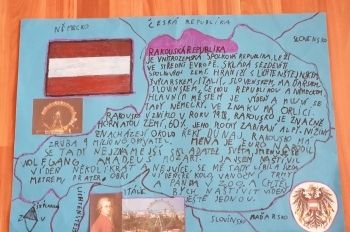 NĚMECKO
ČESKÁ REPUBLIKA
SLOVENSKO
RAKOUSKÁ REPUBLIKA
JE VNITROZEMSKÁ SPOLKOVÁ REPUBLIKA, LEŽÍ
VE STŘEDNÍ EVROPĚ. SKLÁDÁ SE Z DEVÍTI
SPOLKOVÝCH ZEMÍ. HRANIČÍ S LICHTENŠTEJNSKEM,
ŠVÝCARSKEM, ITALIÍ, SLOVINSKEM, MAĎARSKEM,
SLOVENSKEM, ČESKOU REPUBLIKOU A NĚMECKEM.
HLAVNÍM MĚSTEM JE VÍDEŇ A MLUVÍ SE
TADY NĚMECKY. VE ZNAKU MÁ ORLICI
RAKOUSKO VZNIKLO V ROCE 1918. RAKOUSKO JE ZNAČNĚ
HORNATOU ZEMÍ, 60% JEHO PLOCHY ZABÍRAJÍ ALPY. NÍŽINY
SE NACHÁZEJÍ OKOLO ŘEKY DUNAJ. RAKOUSKO MÁ
ZHRUBA 9 MILIONŮ OBYVATEL. MĚNA JE EURO
JE TADY NEJZNÁMĚJŠÍ SKLADATEL SVĚTA JMENUJE SE
WOLFGANG AMADEUS MOZART. JÁ JSEM NAVŠTÍVIL
VÍDEŇ NĚKOLIKRÁT. NEJVÍCE SE MĚ TADY LÍBILA JÍZDA
METREM, PRATER, OBŘÍ VÍDEŇSKÉ KOLO, VÁNOČNÍ TRHY
A PANDA V ZOO. A CHTĚL
BYCH NAVŠTÍVIT VÍDEŇ
JEŠTĚ JEDNOU.
ITÁLIE
SLOVINSKO
MAĎARSKO